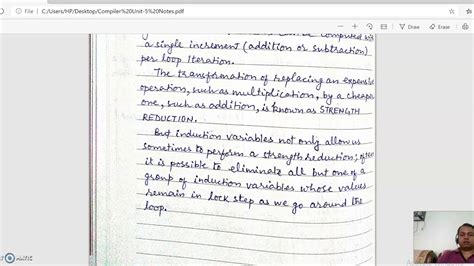 File
C:/Users/HP/Desktop/Compiler%20Unit-5%20Notes.pdf
computed
a single increment (addition or subtraction)
per loop Iteration.
The transformation of replacing an expensive
operation, such as multiplication, by a cheaper
one, such as addition, is known as STRENGTH
REDUCTION.
But induction variables not only allow us
sometimes to perform a strength reduction; often
it is possible to eliminate all but one of a
group of induction variables whose values
remain in lock step as we go around the
loop.